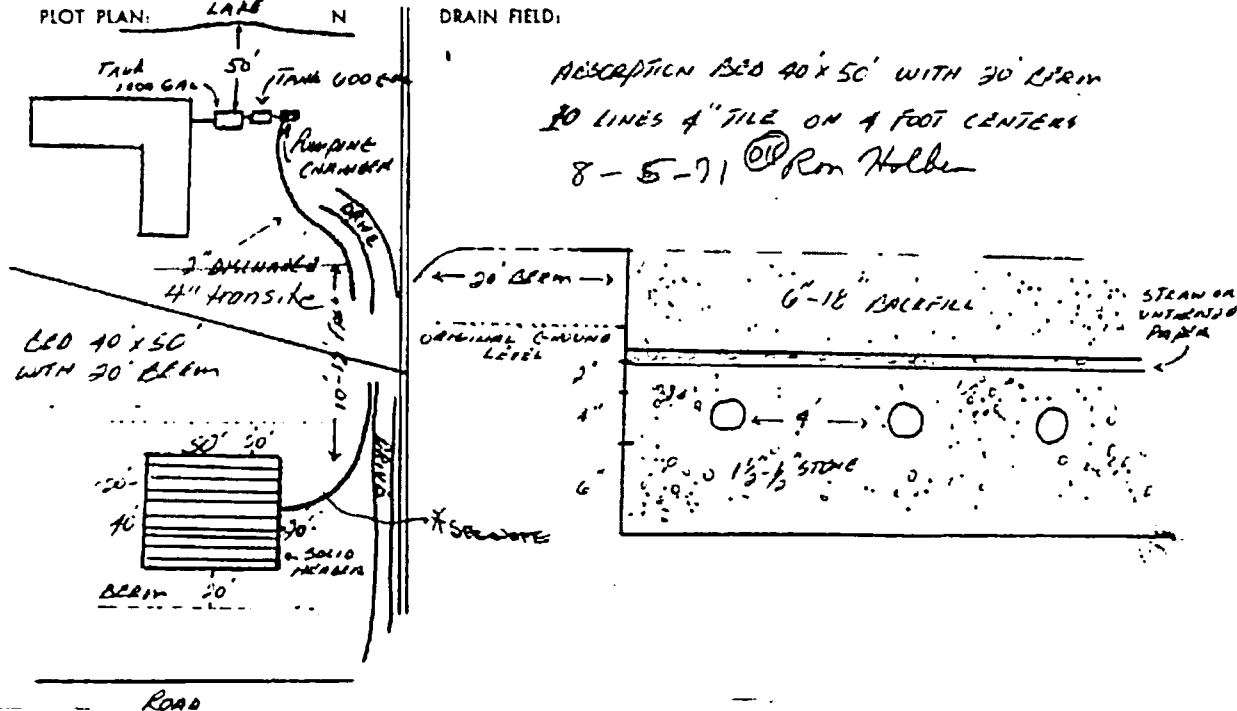 PLOT PLAN:
LAKE
N
50'
TANK
1000 GAL
TANK 600 GAL
PUMPING
CHAMBER
DRIVE
2" DISCHARGE
4" transite
BED 40' x 50'
WITH 20' BERM
50'
20'
20'
40'
SOLID
HEADER
BERM 20'
DRIVE
* SEE NOTE
ROAD
DRAIN FIELD:
ABSORPTION BED 40' x 50' WITH 20' BERM
10 LINES 4" TILE ON 4 FOOT CENTERS
8-5-71 Ron Holben
20' BERM
6"-18" BACKFILL
STRAW OR
UNTREATED
PAPER
ORIGINAL GROUND
LEVEL
2"
4"
4'
6"
1/2"-1 1/2" STONE